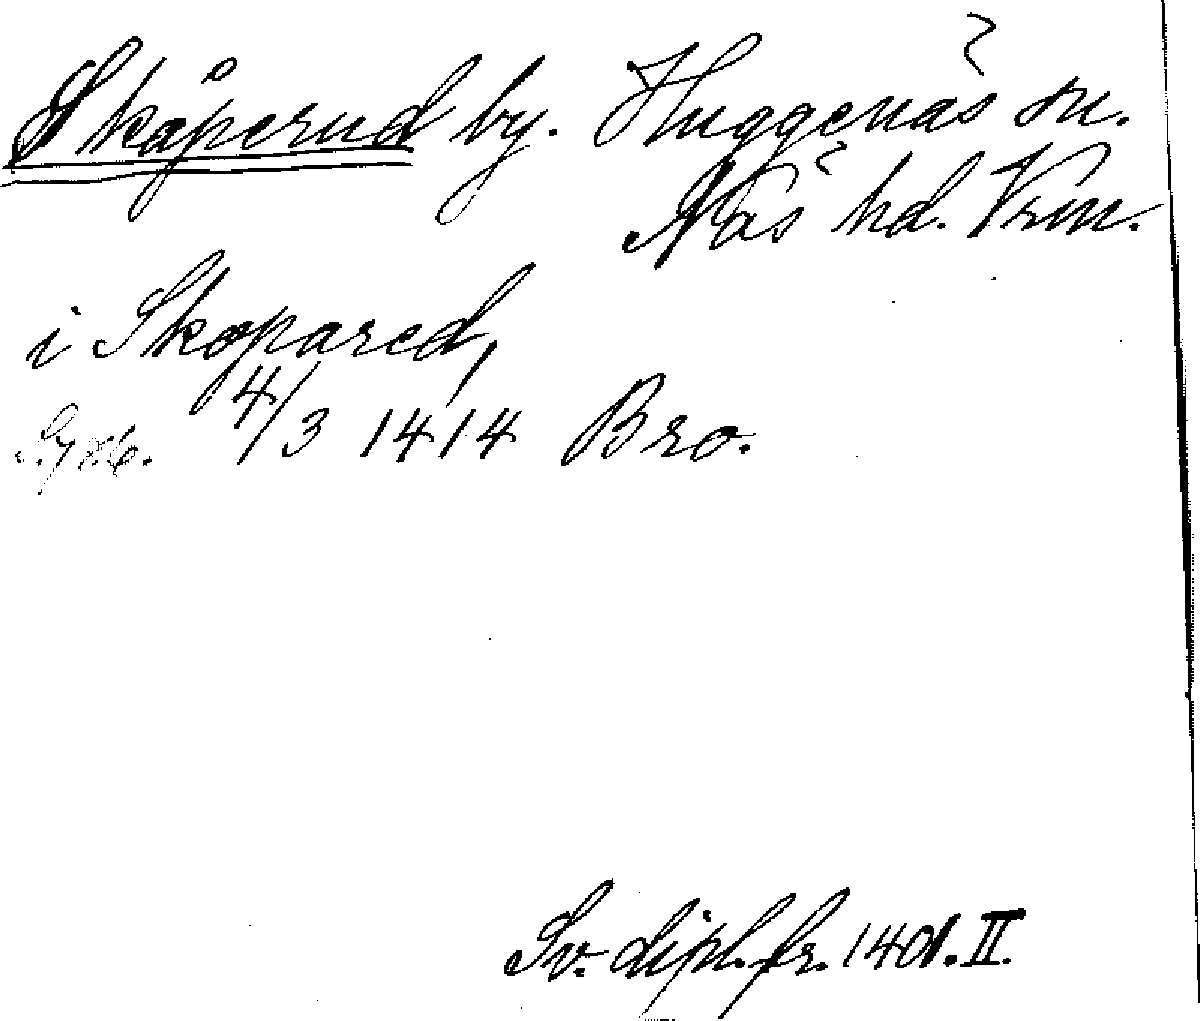 Skåperud by. Huggenäs sn.
Näs hd. Vrm.
i Skopared,
4/3 1414 Bro.
Sv. dipl. fr. 1401. II.